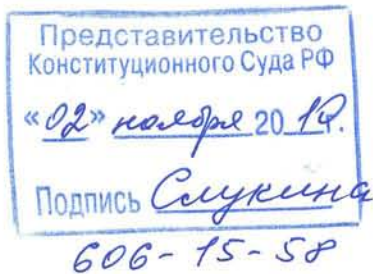 Представительство
Конституционного Суда РФ
«02» ноября 20 г.
Подпись Слукина
606-15-58